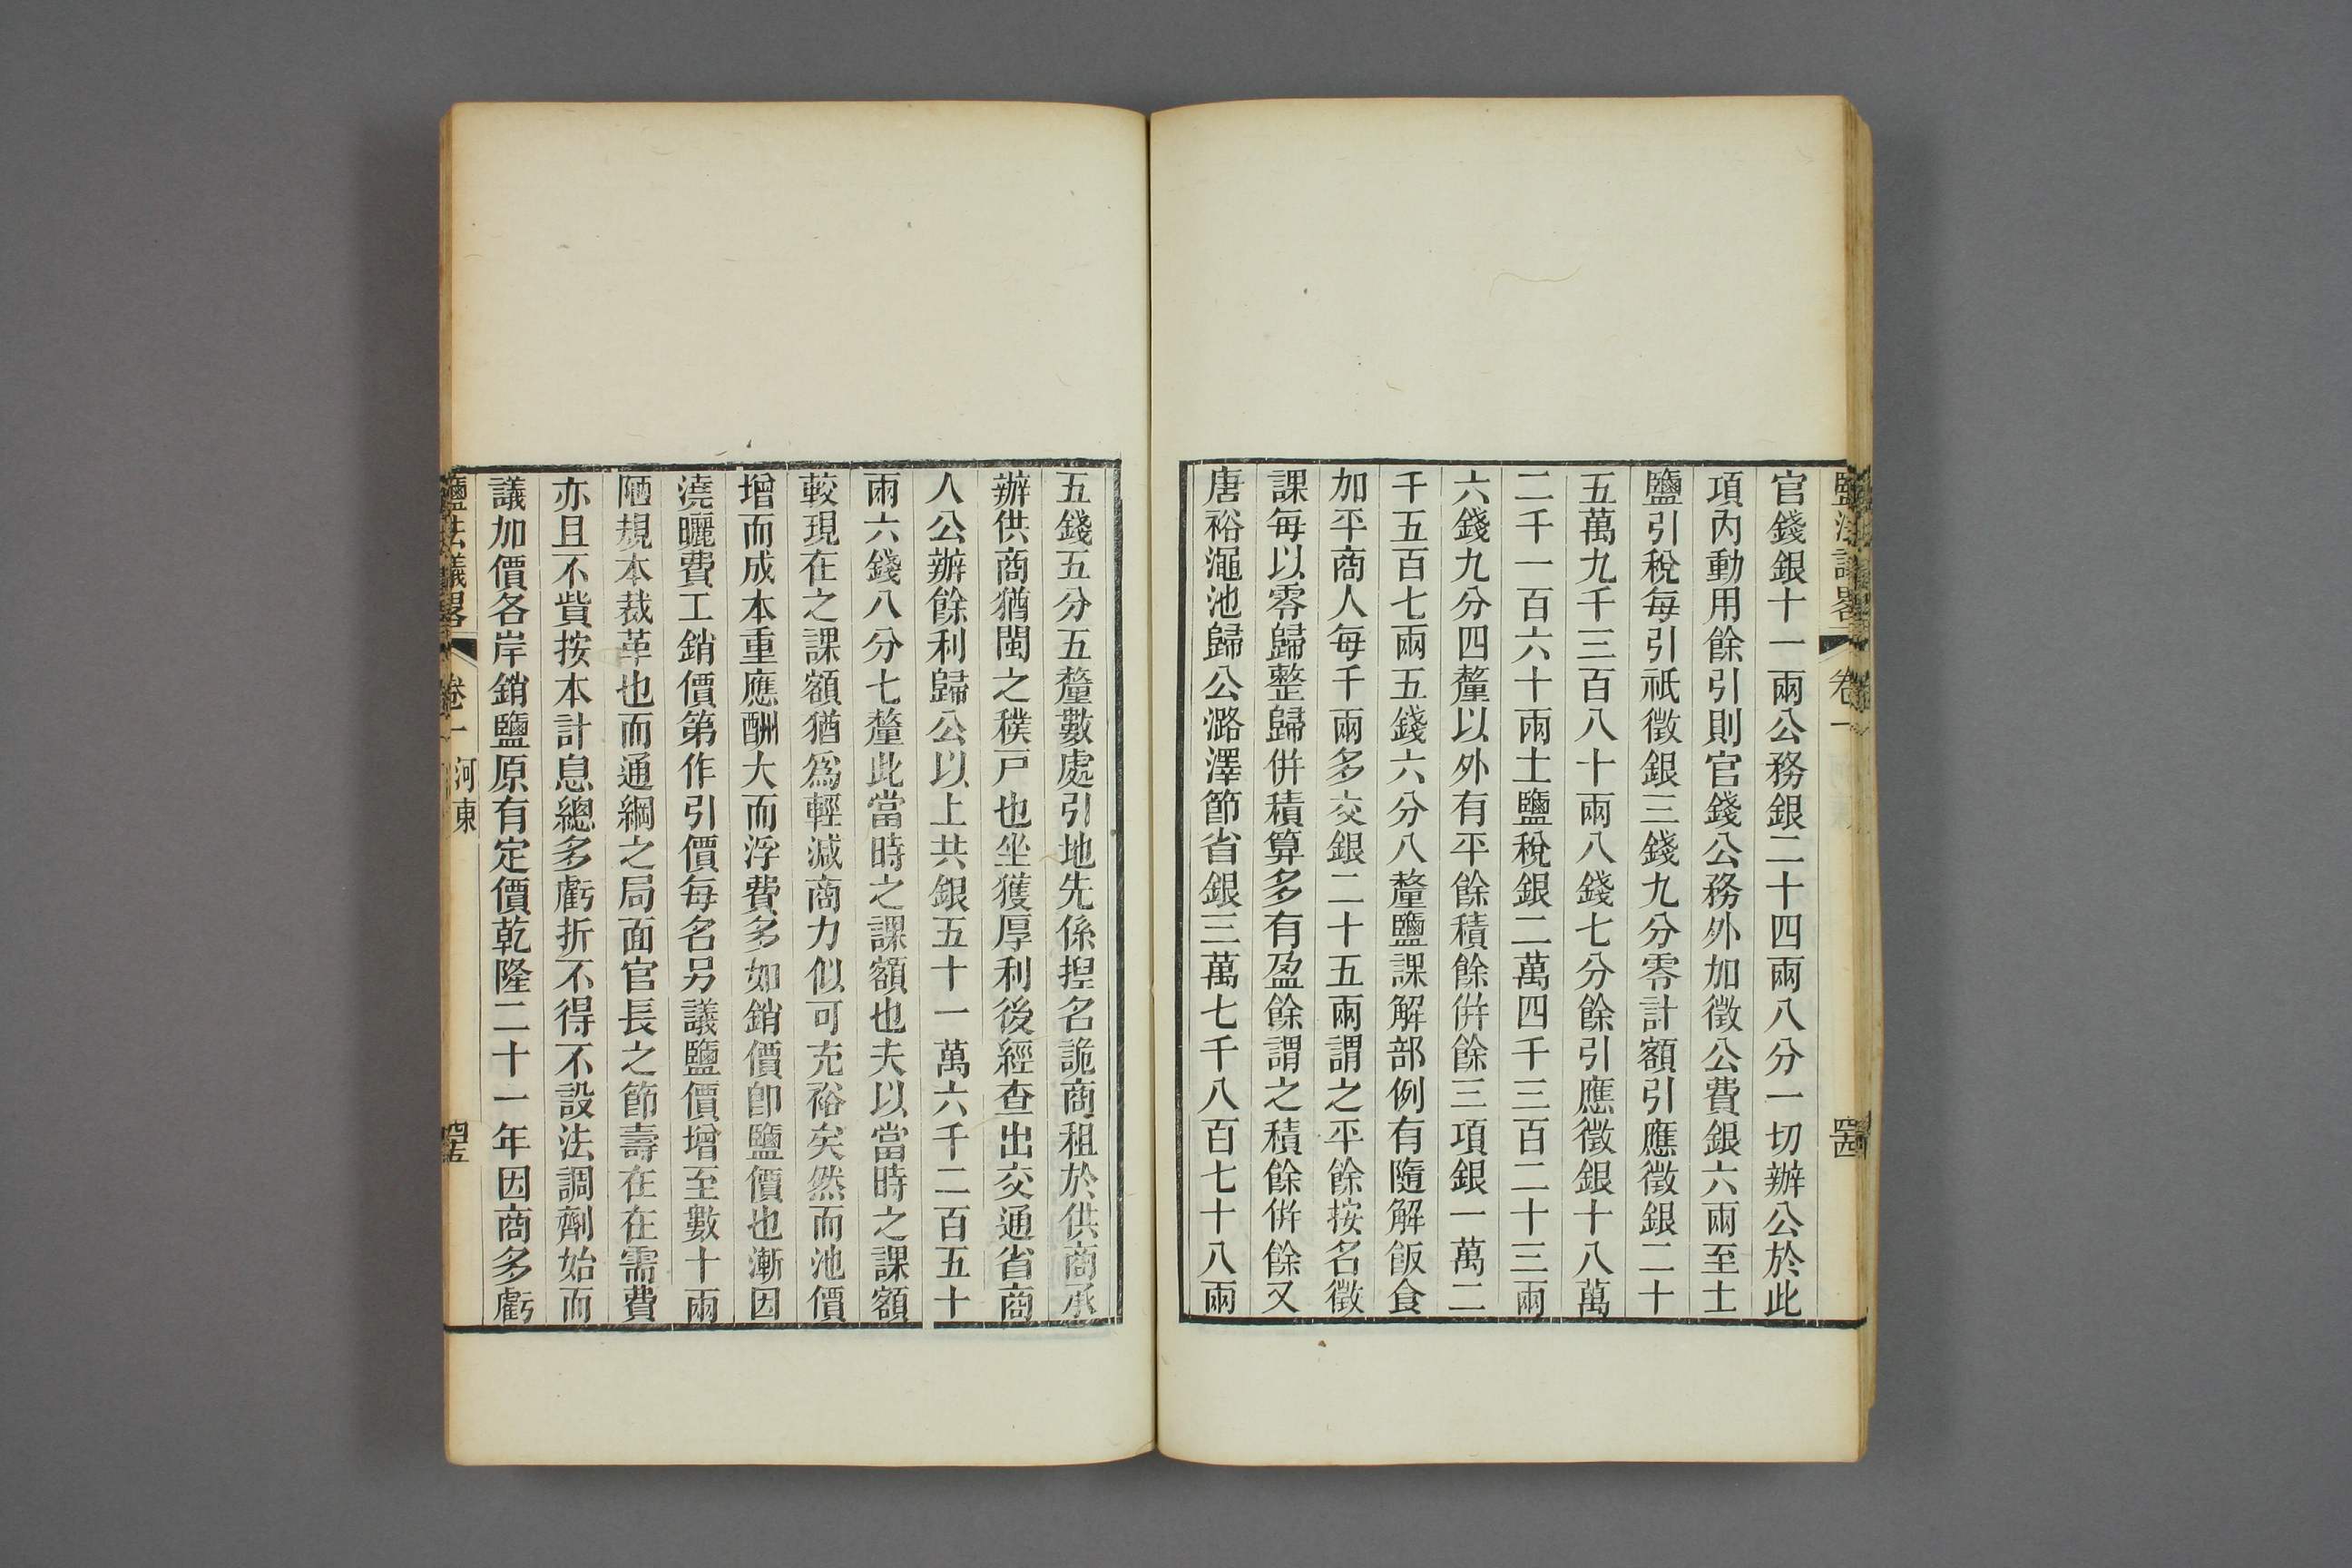 鹽法議畧
卷一
四十四
官錢銀十一兩公務銀二十四兩八分一切辦公於此
項內動用餘引則官錢公務外加徵公費銀六兩至土
鹽引稅每引祇徵銀三錢九分零計額引應徵銀二十
五萬九千三百八十兩八錢七分餘引應徵銀十八萬
二千一百六十兩土鹽稅銀二萬四千三百二十三兩
六錢九分四釐以外有平餘積餘併餘三項銀一萬二
千五百七兩五錢六分八釐鹽課解部例有隨解飯食
加平商人每千兩多交銀二十五兩謂之平餘按名徵
課每以零歸整歸併積算多有盈餘謂之積餘併餘又
唐裕澠池歸公潞澤節省銀三萬七千八百七十八兩
五錢五分五釐數處引地先係揑名詭商租於供商承
辦供商猶閩之穙戸也坐獲厚利後經查出交通省商
人公辦餘利歸公以上共銀五十一萬六千二百五十
兩六錢八分七釐此當時之課額也夫以當時之課額
較現在之課額猶爲輕減商力似可充裕矣然而池價
增而成本重應酬大而浮費多如銷價卽鹽價也漸因
澆曬費工銷價第作引價每名另議鹽價增至數十兩
陋規本裁革也而通綱之局面官長之節壽在在需費
亦且不貲按本計息總多虧折不得不設法調劑始而
議加價各岸銷鹽原有定價乾隆二十一年因商多虧
鹽法議畧
卷一
河東
四十五